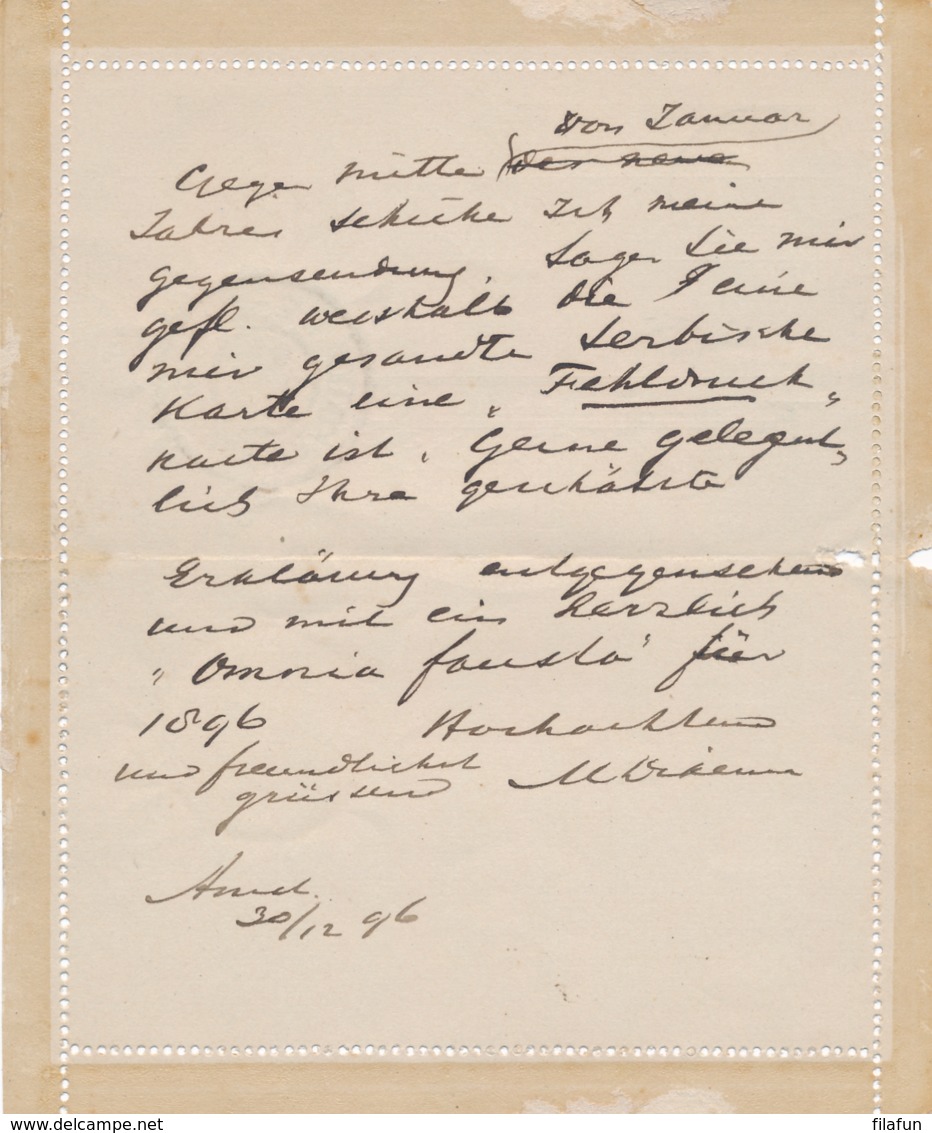 von Januar
Gegen Mitte des neue
Jahres schicke Ich meine
gegensendung. Sagen Sie mir
gefl. weishalb die feine
mir gesandte Serbische
Karte eine „Fehldruck„
karte ist. Gerne gelegent„
lich Ihre geschätzte
Erklärung entgegensehend
und mit ein herzlich
"Omnia fausta" für
1896 Hochachtend
und freundlichst
grüssend M
Amst.
30/12 96
filafun
www.delcampe.net